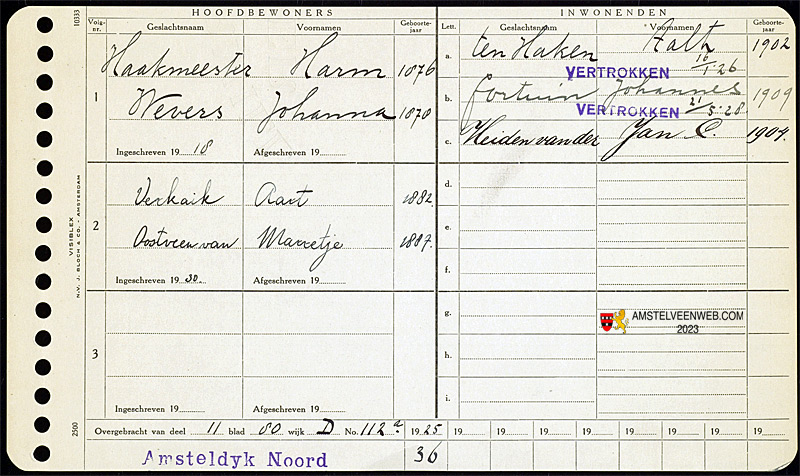 HOOFDBEWONERS
Volg-nr. Geslachtsnaam Voornamen Geboorte-jaar
1 Haakmeester Harm 1876
Wevers Johanna 1870
Ingeschreven 19 18 Afgeschreven 19
2 Verkaik Aart 1882
Oostveen van Marretje 1887.
Ingeschreven 19 30. Afgeschreven 19
3
Ingeschreven 19 Afgeschreven 19
INWONENDEN
Lett. Geslachtsnaam Voornamen Geboorte-jaar
a. ten Haken Aalt 1902
VERTROKKEN 16/1 26
b. Fortuin Johannes 1909
VERTROKKEN 21/5-28.
c. Heiden van der Jan C. 1904.
d.
e.
f.
g.
h.
i.
AMSTELVEENWEB.COM
2023
Overgebracht van deel 11 blad 80 wijk D No. 112 a 1925 19 19 19 19 19 19 19 19
Amsteldyk Noord 36
10333
VISIBLEX
N.V. J. BLOCH & CO. - AMSTERDAM
2500